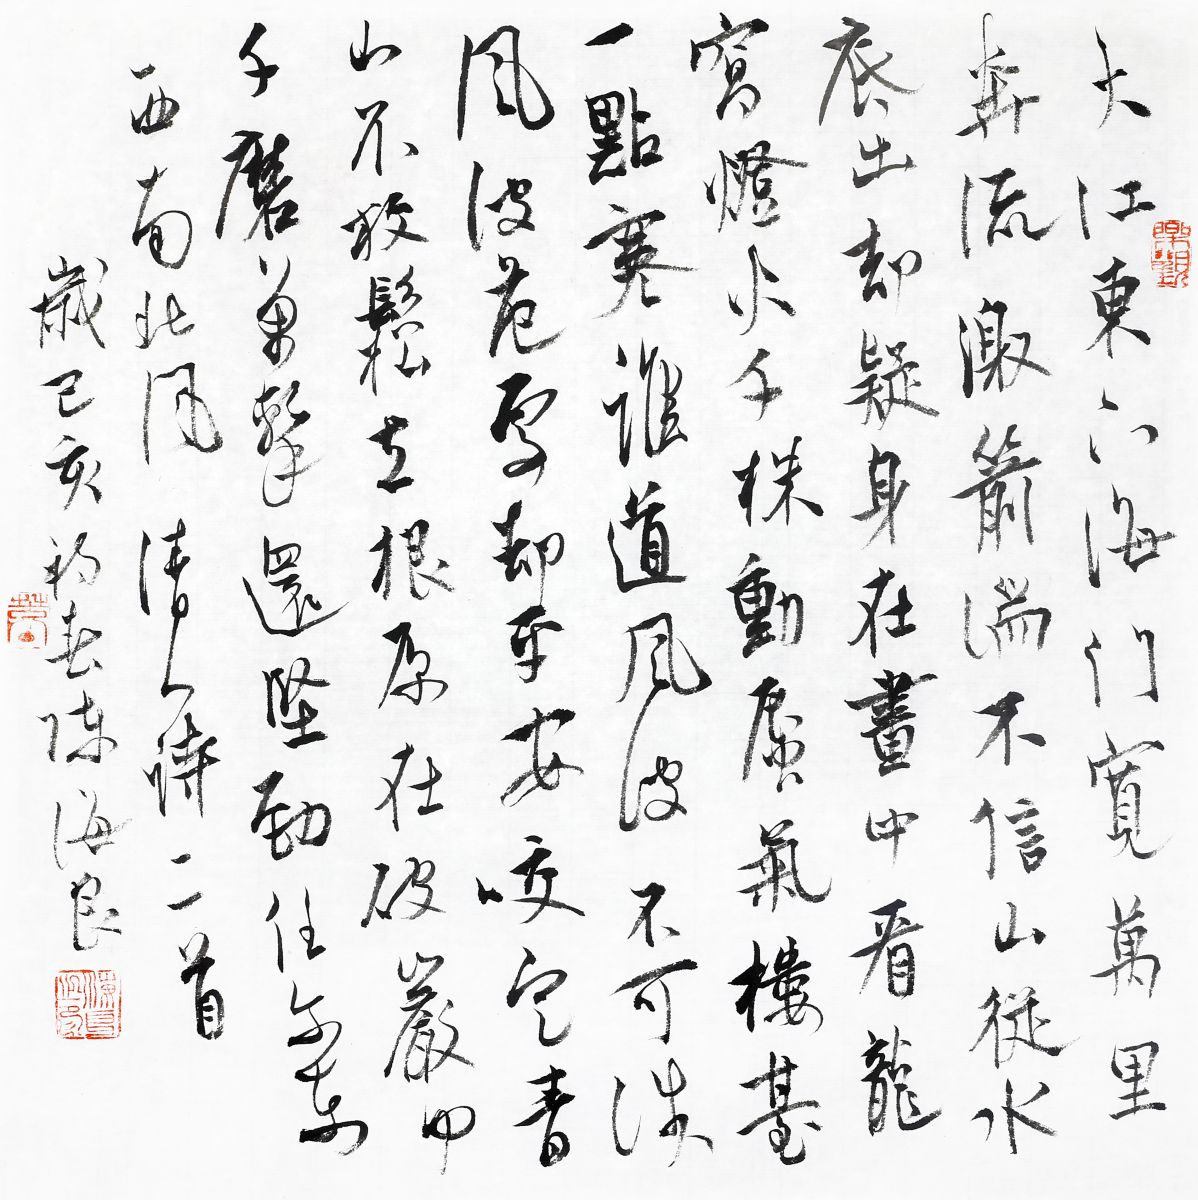 大江東下海門寬萬里
奔流激箭湍不信山從水
底出却疑身在畫中看龍
窩燈火千株動蜃氣樓臺
一點寒誰道風波不可涉
風波處却平安咬定青
山不放鬆立根原在破巖中
千磨萬擊還堅勁任爾東
西南北風 清人詩二首
歲己亥初春陳海良